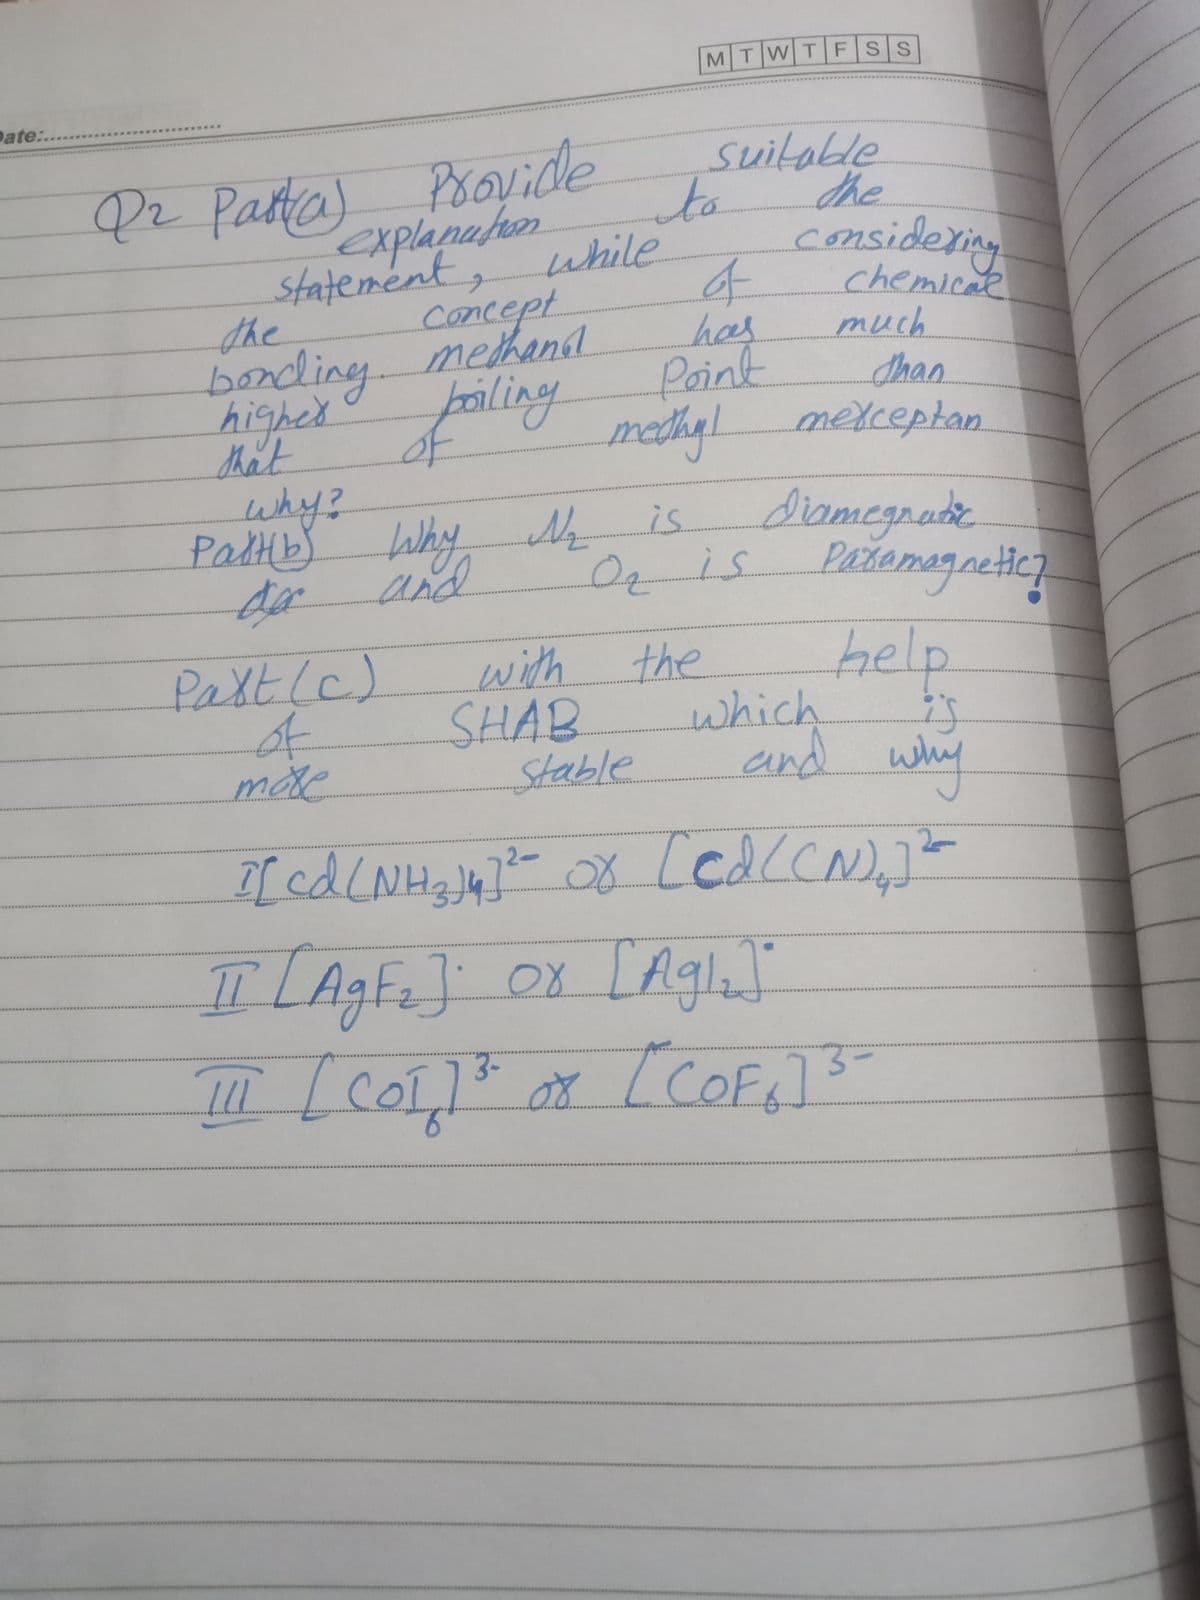 M T W T F S S
Date:
Q2 Part(a) Provide suitable
explanation to the
statement, while considering
the concept of chemical
bonding. methanol has much
higher boiling Point than
that of methyl merceptan
why?
Part(b) Why N2 is diamegnatic
and O2 is Paramagnetic?
Part(c) with the help
of SHAB which is
more stable and why
I[cd(NH3)4]2- or [cd(CN)4]2-
II [AgF2]· or [AgI2]·
III [COI6]3- or [COF6]3-